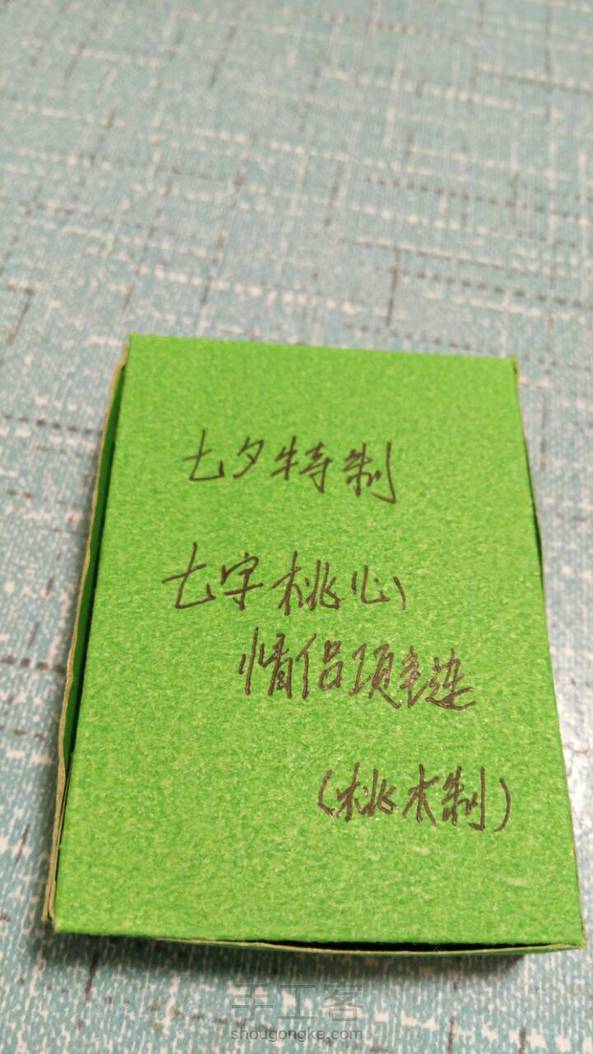 七夕特制
七字桃心
情侣项链
(桃木制)
手工客
shougongke.com